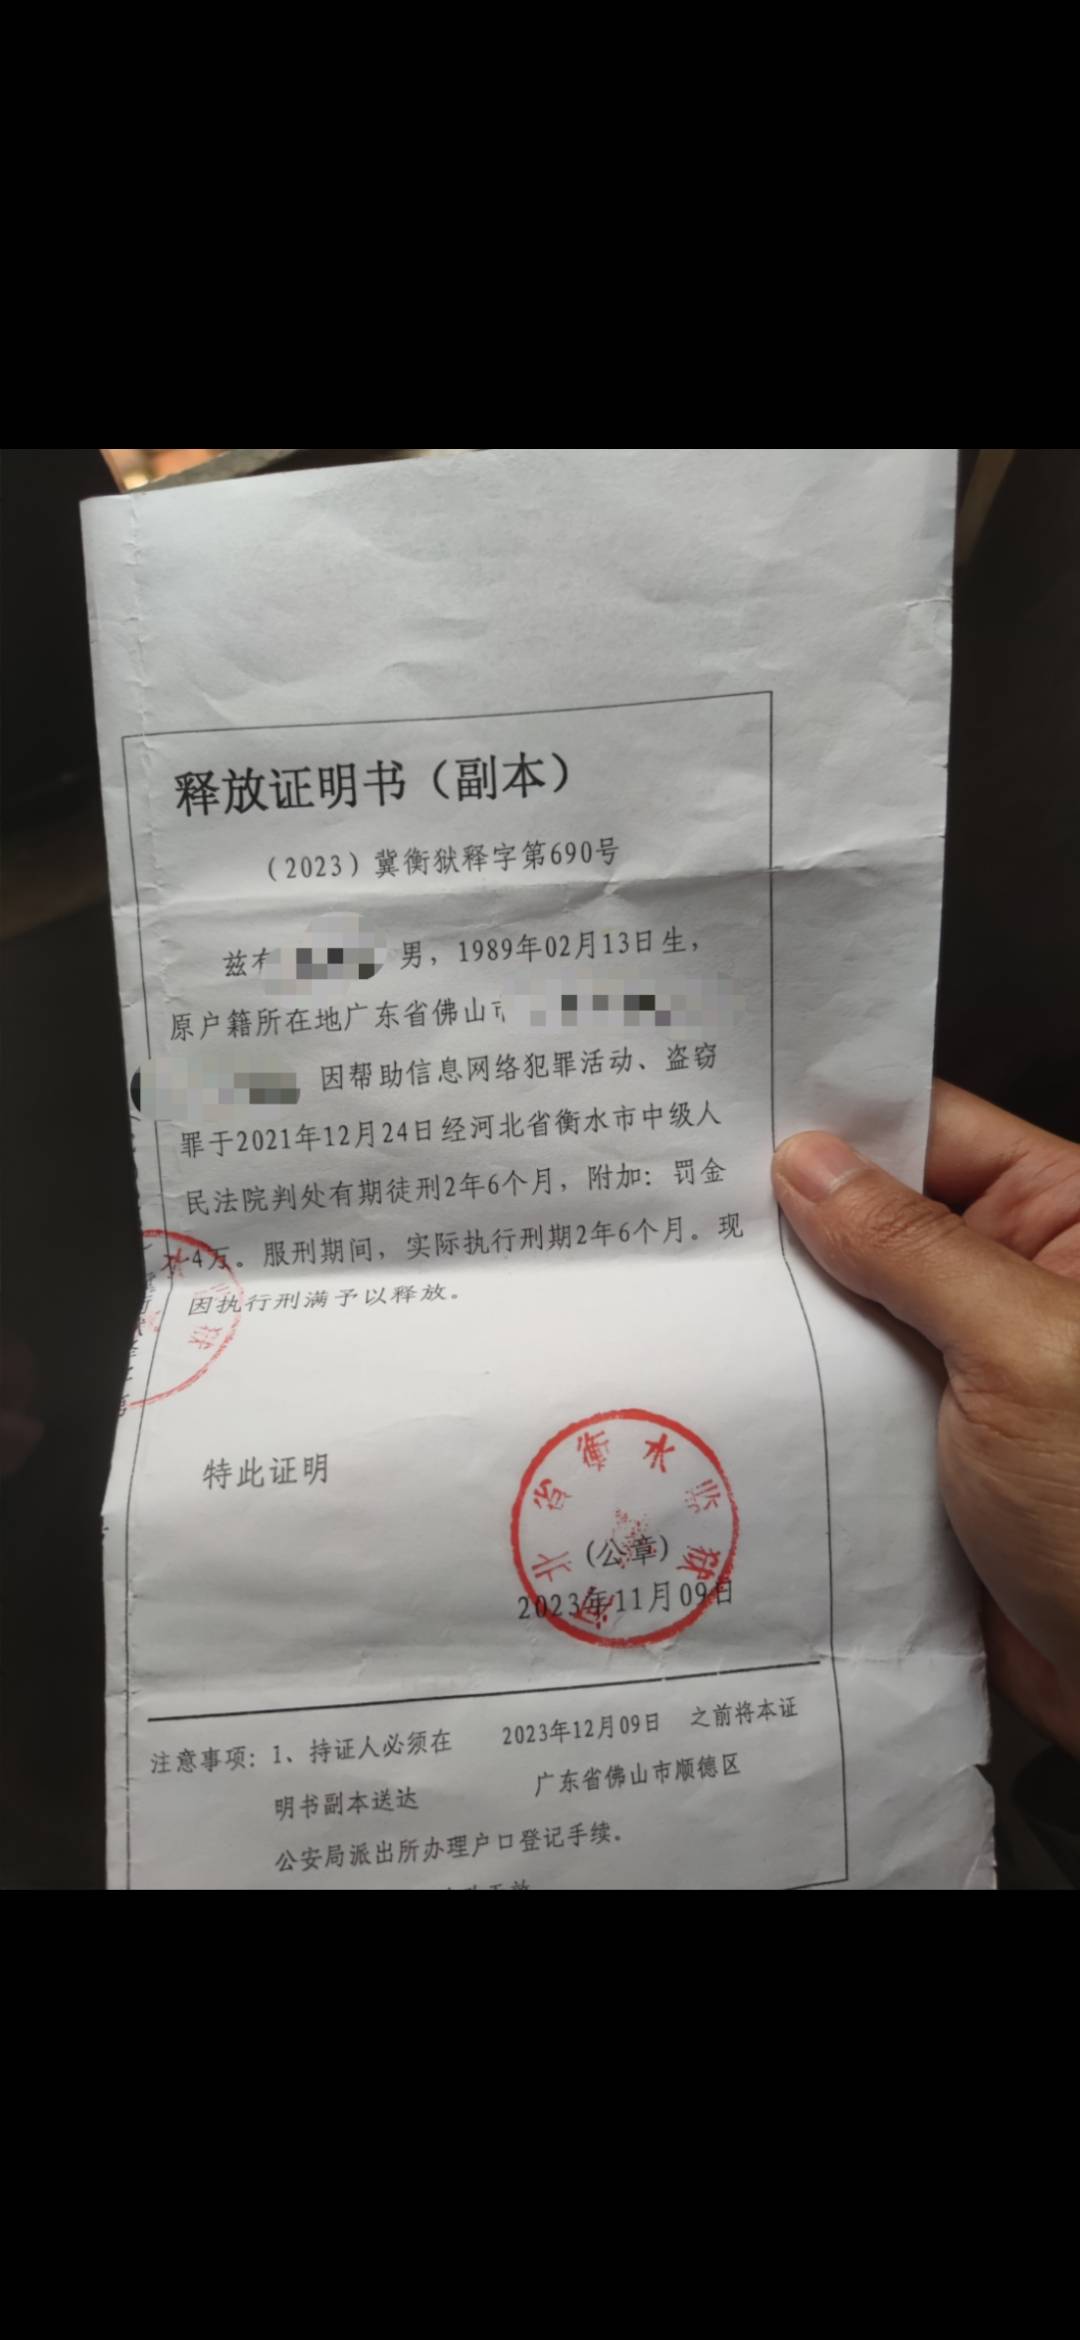 释放证明书（副本）
（2023）冀衡狱释字第690号
兹 男，1989年02月13日生，
原户籍所在地广东省佛山市
因帮助信息网络犯罪活动、盗窃
罪于2021年12月24日经河北省衡水市中级人
民法院判处有期徒刑2年6个月，附加：罚金
4万。服刑期间，实际执行刑期2年6个月。现
因执行刑满予以释放。
特此证明
河北省衡水监狱
（公章）
2023年11月09日
注意事项：1、持证人必须在 2023年12月09日 之前将本证
明书副本送达 广东省佛山市顺德区
公安局派出所办理户口登记手续。